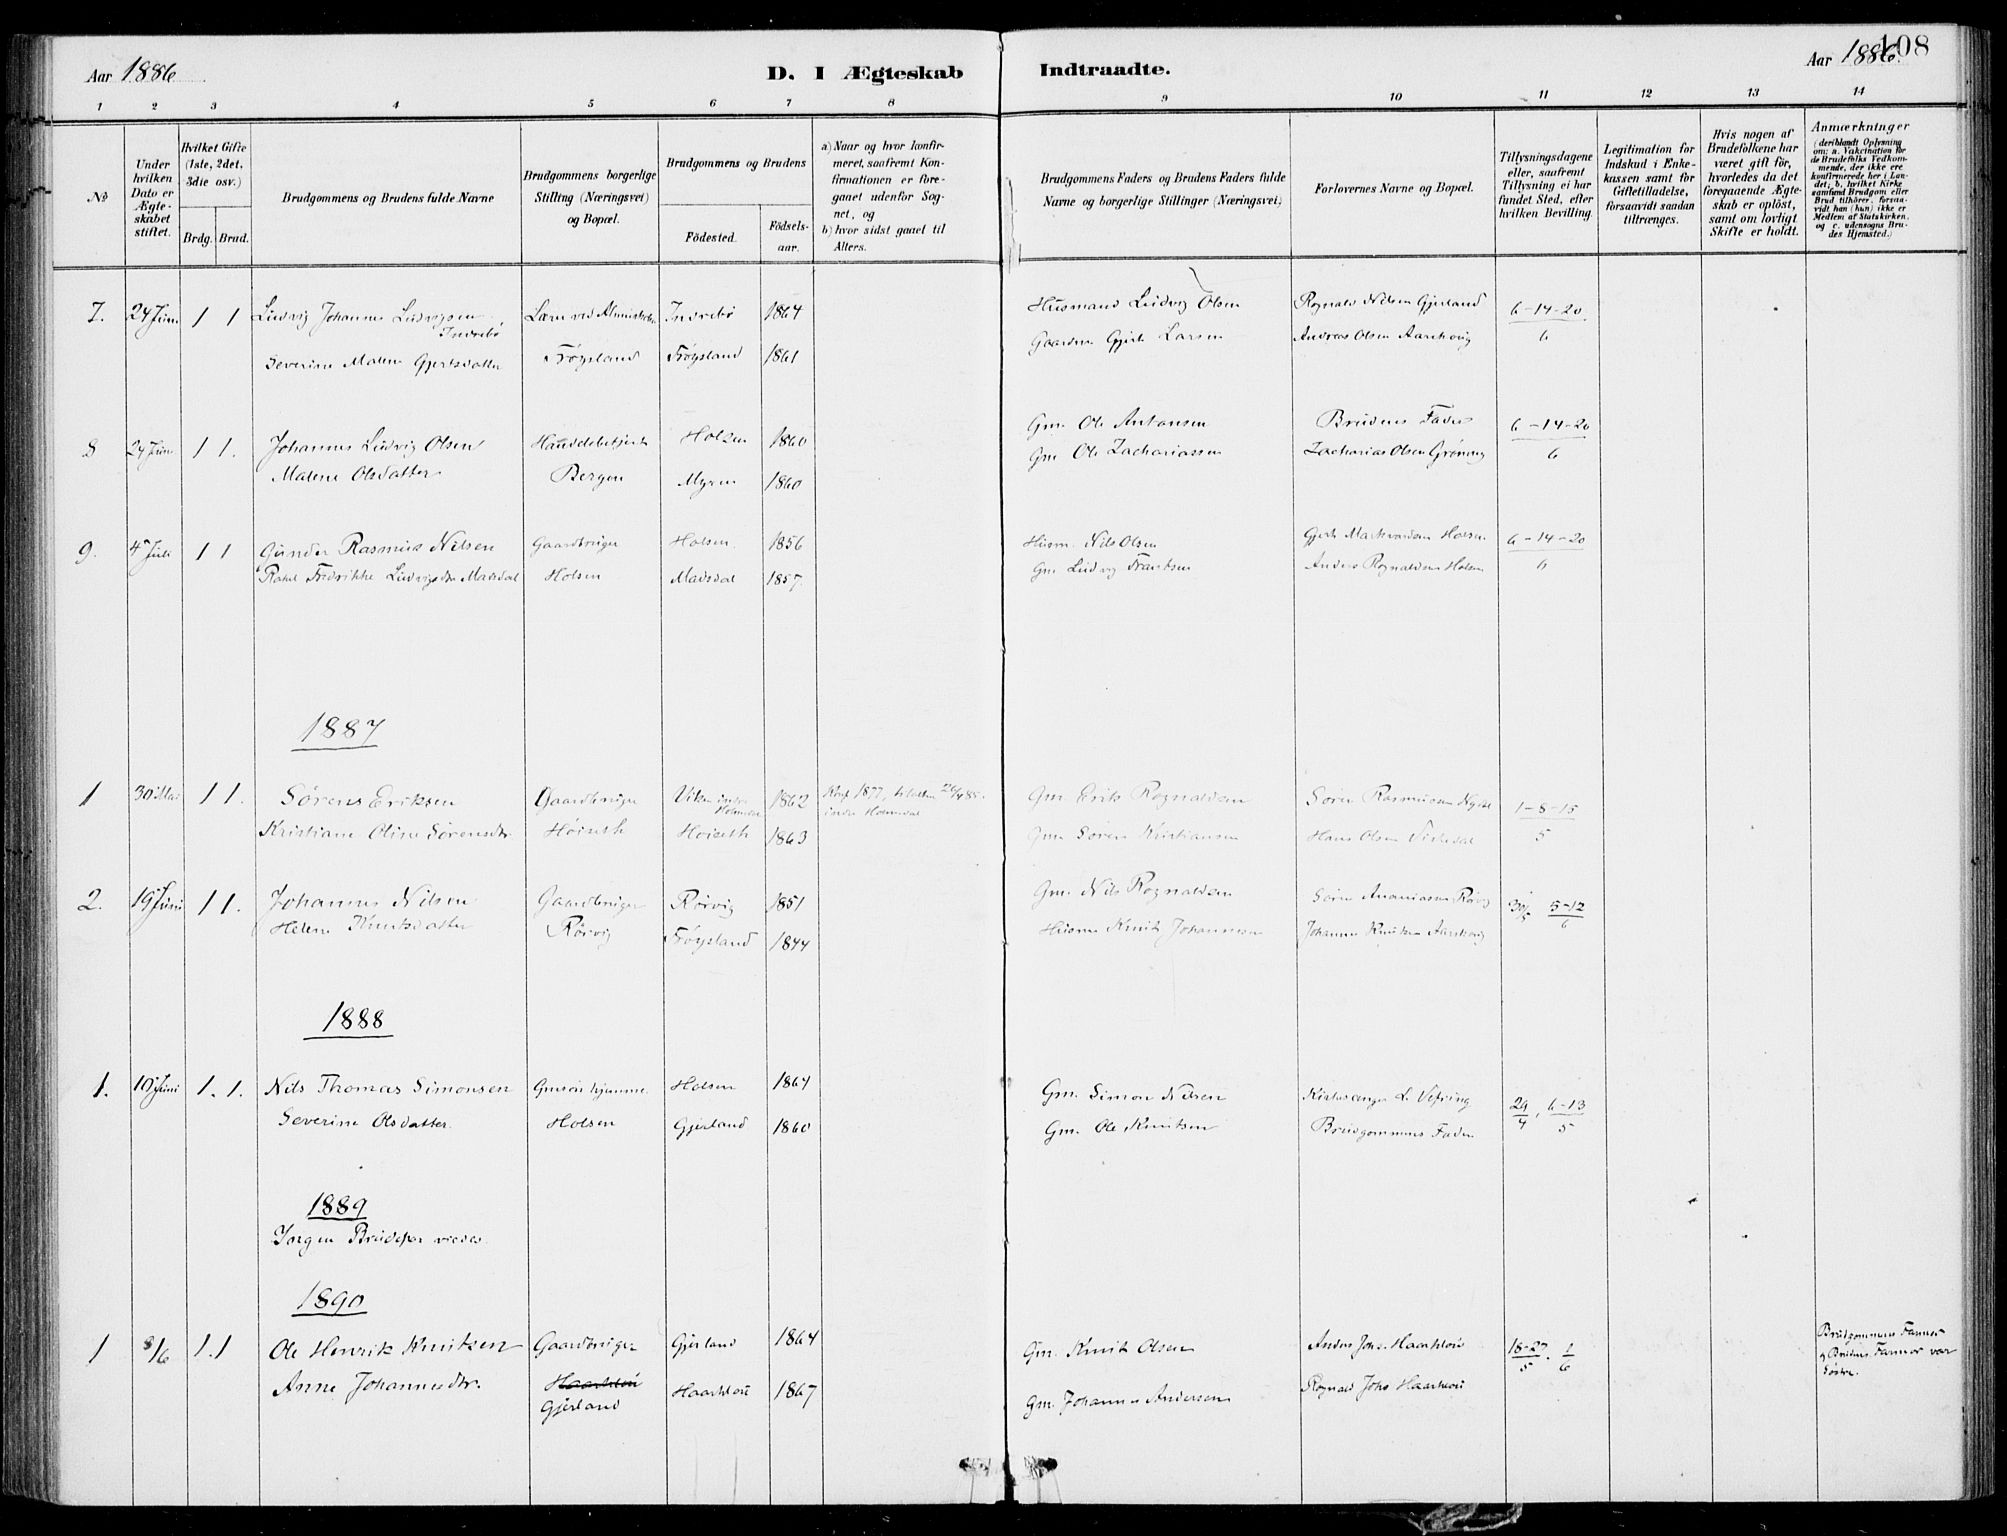 Aar 1886
D. I Ægteskab Indtraadte.
Aar 1886.
108
1 2 3 4 5 6 7 8 9 10 11 12 13 14
No
Under hvilken Dato er Ægteskabet stiftet.
Hvilket Gifte (1ste, 2det, 3die osv.)
Brdg. Brud.
Brudgommens og Brudens fulde Navne
Brudgommens borgerlige Stilling (Næringsvei) og Bopæl.
Brudgommens og Brudens
Födested.
Födselsaar.
a) Naar og hvor konfirmeret, saafremt Konfirmationen er foregaaet udenfor Sognet, og
b) hvor sidst gaaet til Alters.
Brudgommens Faders og Brudens Faders fulde Navne og borgerlige Stillinger (Næringsvei)
Forlovernes Navne og Bopæl.
Tillysningsdagene eller, saafremt Tillysning ei har fundet Sted, efter hvilken Bevilling.
Legitimation for Indskud i Enkekassen samt for Giftetilladelse, forsaavidt saadan tiltrænges.
Hvis nogen af Brudefolkene har været gift för, hvorledes da det foregaaende Ægteskab er oplöst, samt om lovligt Skifte er holdt.
Anmærkninger (deriblandt Oplysning om: a. Vakcination for de Brudefolks Vedkommende, der ikke ere konfirmerede her i Landet; b. hvilket Kirkesamfund Brudgom eller Brud tilhörer, forsaavidt han (hun) ikke er Medlem af Statskirken, og c. udensogns Brudes Hjemsted.)
7. 24 Juni 1 1 Ludvig Johannes Ludvigsen Indrebö
Indrebö 1864 Husmand Ludvig Olsen Rognald Nilsen Gjerland 6-14-20
6
Severine Malene Gjertsdatter Fröysland Fröysland 1861 Gaardm Gjert Larsen Andreas Olsen Aarskoug
8 24 Juni 1 1. Johannes Ludvig Olsen Handelsbetjent Holsen 1860 Gm. Ole Antonsen Brudens Fader 6-14-20
6
Malene Olsdatter Bergen Myren 1860 Gm Ole Zachariassen Zacharias Olsen Gröning
9. 4 Juli 1 1 Gunder Rasmus Nilsen Gaardbruger Holsen. 1856 Husm. Nils Olsen Gjert Markvardsen Holsen 6-14-20
6
Rakel Fredrikke Ludvigsdtr Madsdal Holsen Madsdal 1857. Gm Ludvig Frantsen Anders Rognaldsen Holsen
1887
1 30 Mai 1 1. Sörens Eriksen Gaardbruger Viken indre Holmedal 1862 Konf 1877, 26/4 85. indre Holmedal
Gm. Erik Rognaldsen Sören Rasmussen 1-8-15
5
Kristiane Oline Sörensdtr Höiseth Höiseth 1863 Gm Sören Kristiansen Hans Olsen
2. 19 Juni 1 1. Johannes Nilsen Gaardbruger Rörvig 1851 Gm. Nils Rognaldsen Sören Ananiassen Rörvig 30/5 5-12
6
Helene Knutsdatter Rörvig Fröysland 1844 Husm Knut Johannesen Johannes Knutsen Aarskoug
1888
1. 10 Juni 1. 1. Nils Thomas Simonsen Gmsön hjemme. Holsen 1864 Gm. Simon Nilsen Kirkesanger L. Vefring 29/4, 6-13
5
Severine Olsdatter. Holsen Gjerland 1860 Gm. Ole Knutsen Brudgommens Fader
1889
Ingen Brudepar viedes.
1890
1 8/6 1. 1 Ole Henrik Knutsen Gaardbruger Gjerland 1864 Gm. Knut Olsen Anders Johs. Haarklou 18-27/5. 1/6
Brudgommens Farmor
og Brudens Farmor var
Söstre.
Anne Johannesdtr. Haarklou Haarklou 1867 Gm. Johannes Andersen Rognald Johs Haarklou
Gjerland